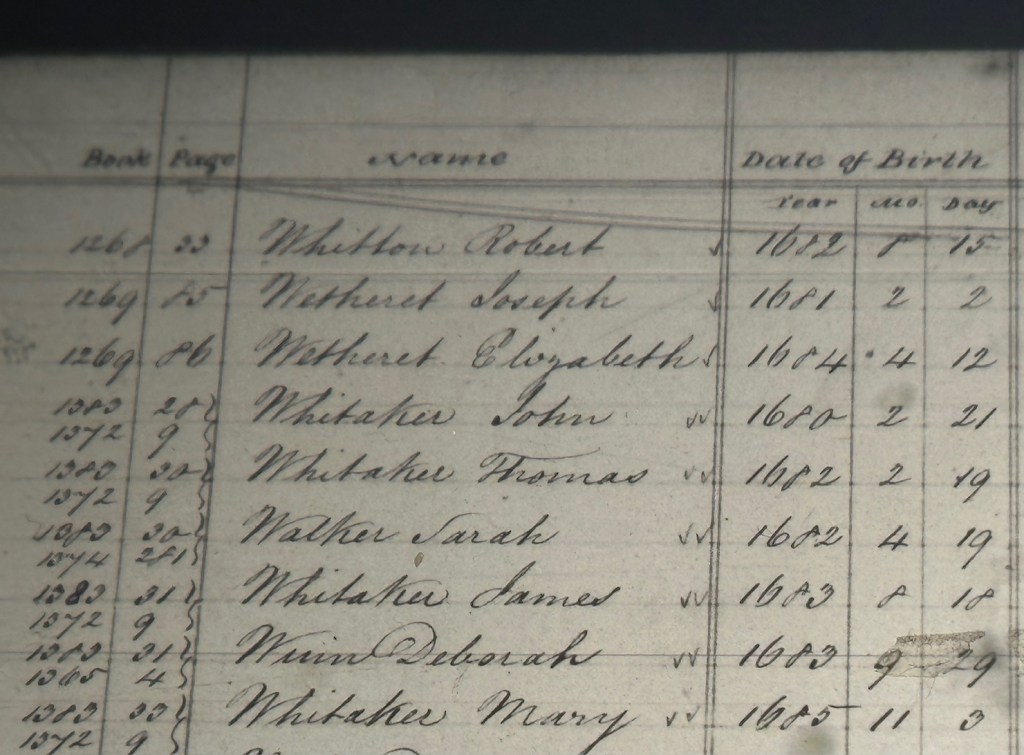 Book Page Name Date of Birth
Year Mo. Day
1268 33 Whitton Robert 1682 8 15
1269 85 Wetheret Joseph 1681 2 2
1269 86 Wetheret Elizabeth 1684 4 12
1383 28 Whitaker John 1680 2 21
1372 9
1383 30 Whitaker Thomas 1682 2 19
1372 9
1383 30 Walker Sarah 1682 4 19
1374 281
1383 31 Whitaker James 1683 8 18
1372 9
1383 31 Winn Deborah 1683 9 29
1365 4
1383 33 Whitaker Mary 1685 11 3
1372 9